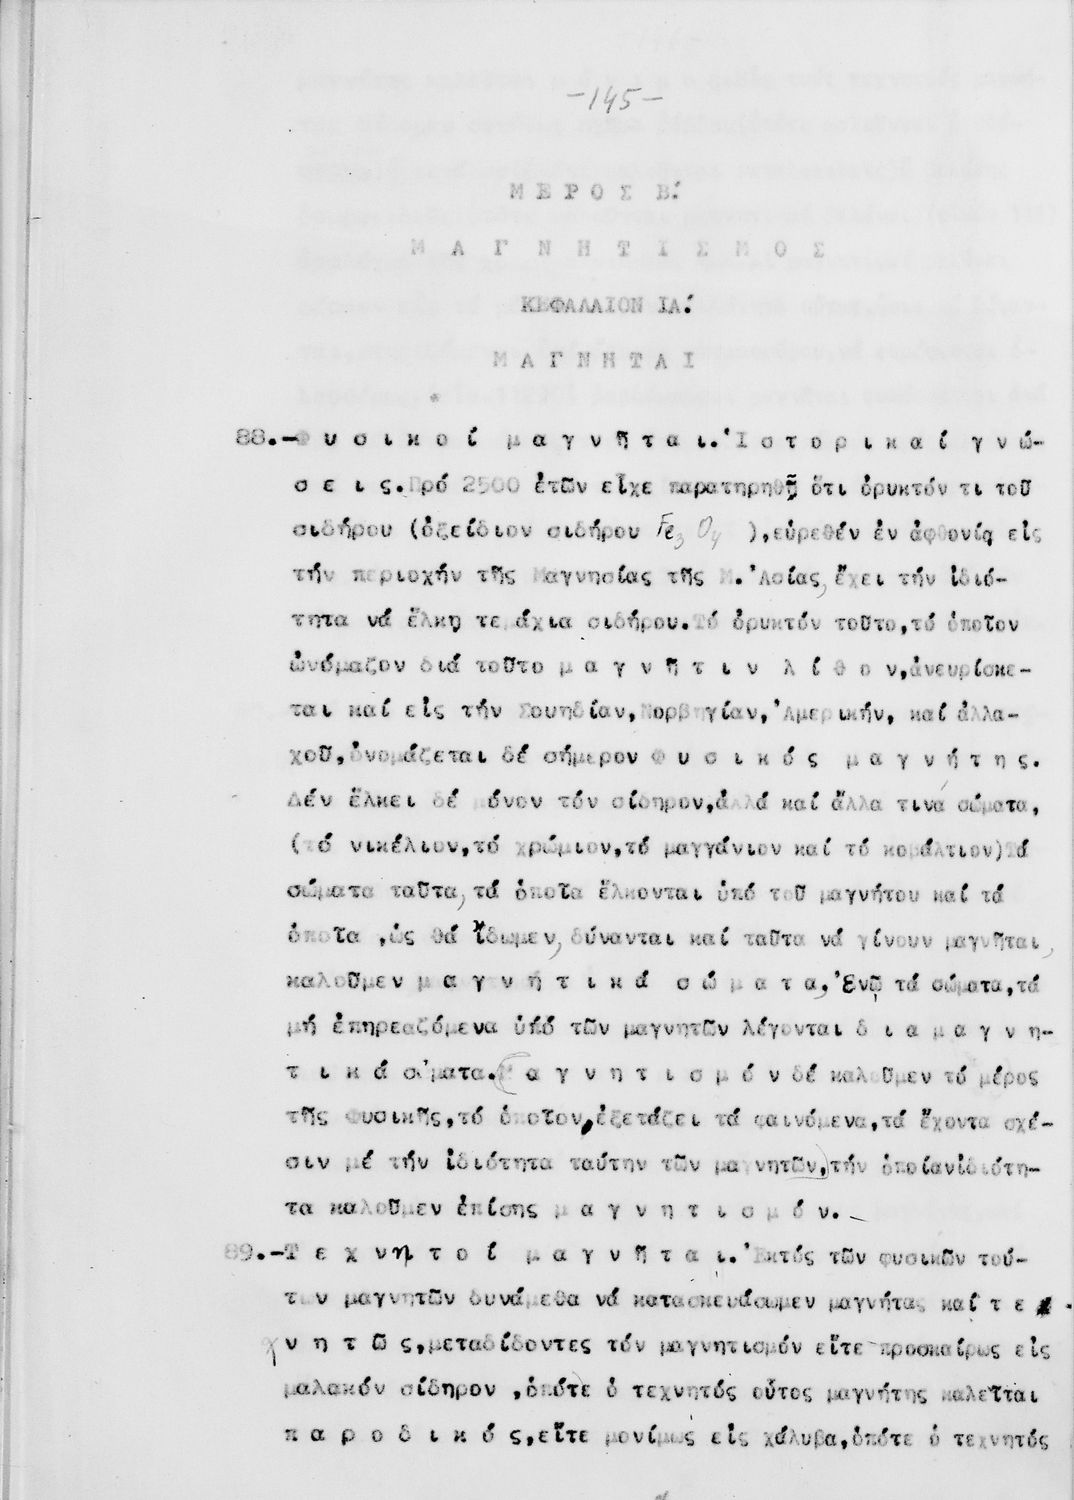 -145-
ΜΕΡΟΣ Β΄.
ΜΑΓΝΗΤΙΣΜΟΣ
ΚΕΦΑΛΑΙΟΝ ΙΑ΄.
ΜΑΓΝΗΤΑΙ
88.-Φυσικοί μαγνῆται. Ἱστορικαί γνώ-
σεις. Πρό 2500 ἐτῶν εἶχε παρατηρηθῇ ὅτι ὀρυκτόν τι τοῦ
σιδήρου (ὀξείδιον σιδήρου Fe₃O₄ ), εὑρεθέν ἐν ἀφθονίᾳ εἰς
τήν περιοχήν τῆς Μαγνησίας τῆς Μ. Ἀσίας, ἔχει τήν ἰδιό-
τητα νά ἕλκῃ τεμάχια σιδήρου. Τό ὀρυκτόν τοῦτο, τό ὁποῖον
ὠνόμαζον διά τοῦτο μαγνῆτιν λίθον, ἀνευρίσκε-
ται καί εἰς τήν Σουηδίαν, Νορβηγίαν, Ἀμερικήν, καί ἀλλα-
χοῦ, ὀνομάζεται δέ σήμερον φυσικός μαγνήτης.
Δέν ἕλκει δέ μόνον τόν σίδηρον, ἀλλά καί ἄλλα τινά σώματα,
(τό νικέλιον, τό χρώμιον, τό μαγγάνιον καί τό κοβάλτιον) Τά
σώματα ταῦτα, τά ὁποῖα ἕλκονται ὑπό τοῦ μαγνήτου καί τά
ὁποῖα ,ὡς θά ἴδωμεν, δύνανται καί ταῦτα νά γίνουν μαγνῆται,
καλοῦμεν μαγνητικά σώματα, Ἐνῷ τά σώματα, τά
μή ἐπηρεαζόμενα ὑπό τῶν μαγνητῶν λέγονται διαμαγνη-
τικά σώματα. Μαγνητισμόν δέ καλοῦμεν τό μέρος
τῆς Φυσικῆς, τό ὁποῖον, ἐξετάζει τά φαινόμενα, τά ἔχοντα σχέ-
σιν μέ τήν ἰδιότητα ταύτην τῶν μαγνητῶν, τήν ὁποίαν ἰδιότη-
τα καλοῦμεν ἐπίσης μαγνητισμόν.-
89.-Τεχνητοί μαγνῆται. Ἐκτός τῶν φυσικῶν τού-
των μαγνητῶν δυνάμεθα νά κατασκευάσωμεν μαγνήτας καί τε-
χνητῶς, μεταδίδοντες τόν μαγνητισμόν εἴτε προσκαίρως εἰς
μαλακόν σίδηρον ,ὁπότε ὁ τεχνητός οὗτος μαγνήτης καλεῖται
παροδικός, εἴτε μονίμως εἰς χάλυβα, ὁπότε ὁ τεχνητός